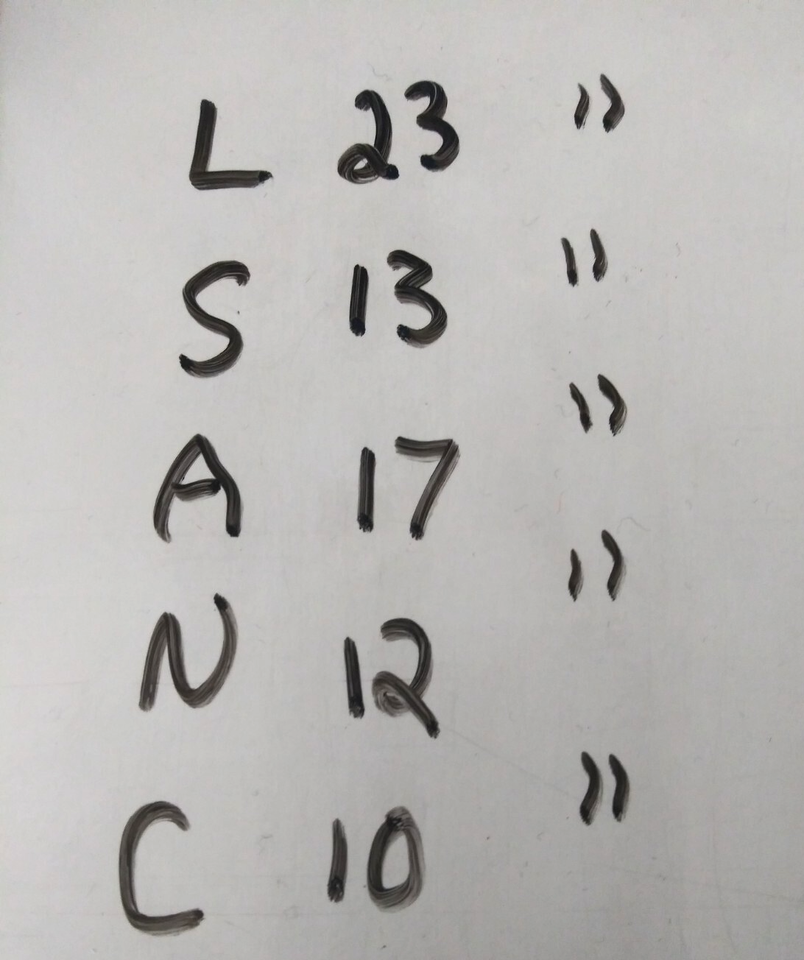 L 23 "
S 13 "
A 17 "
N 12 "
C 10 "